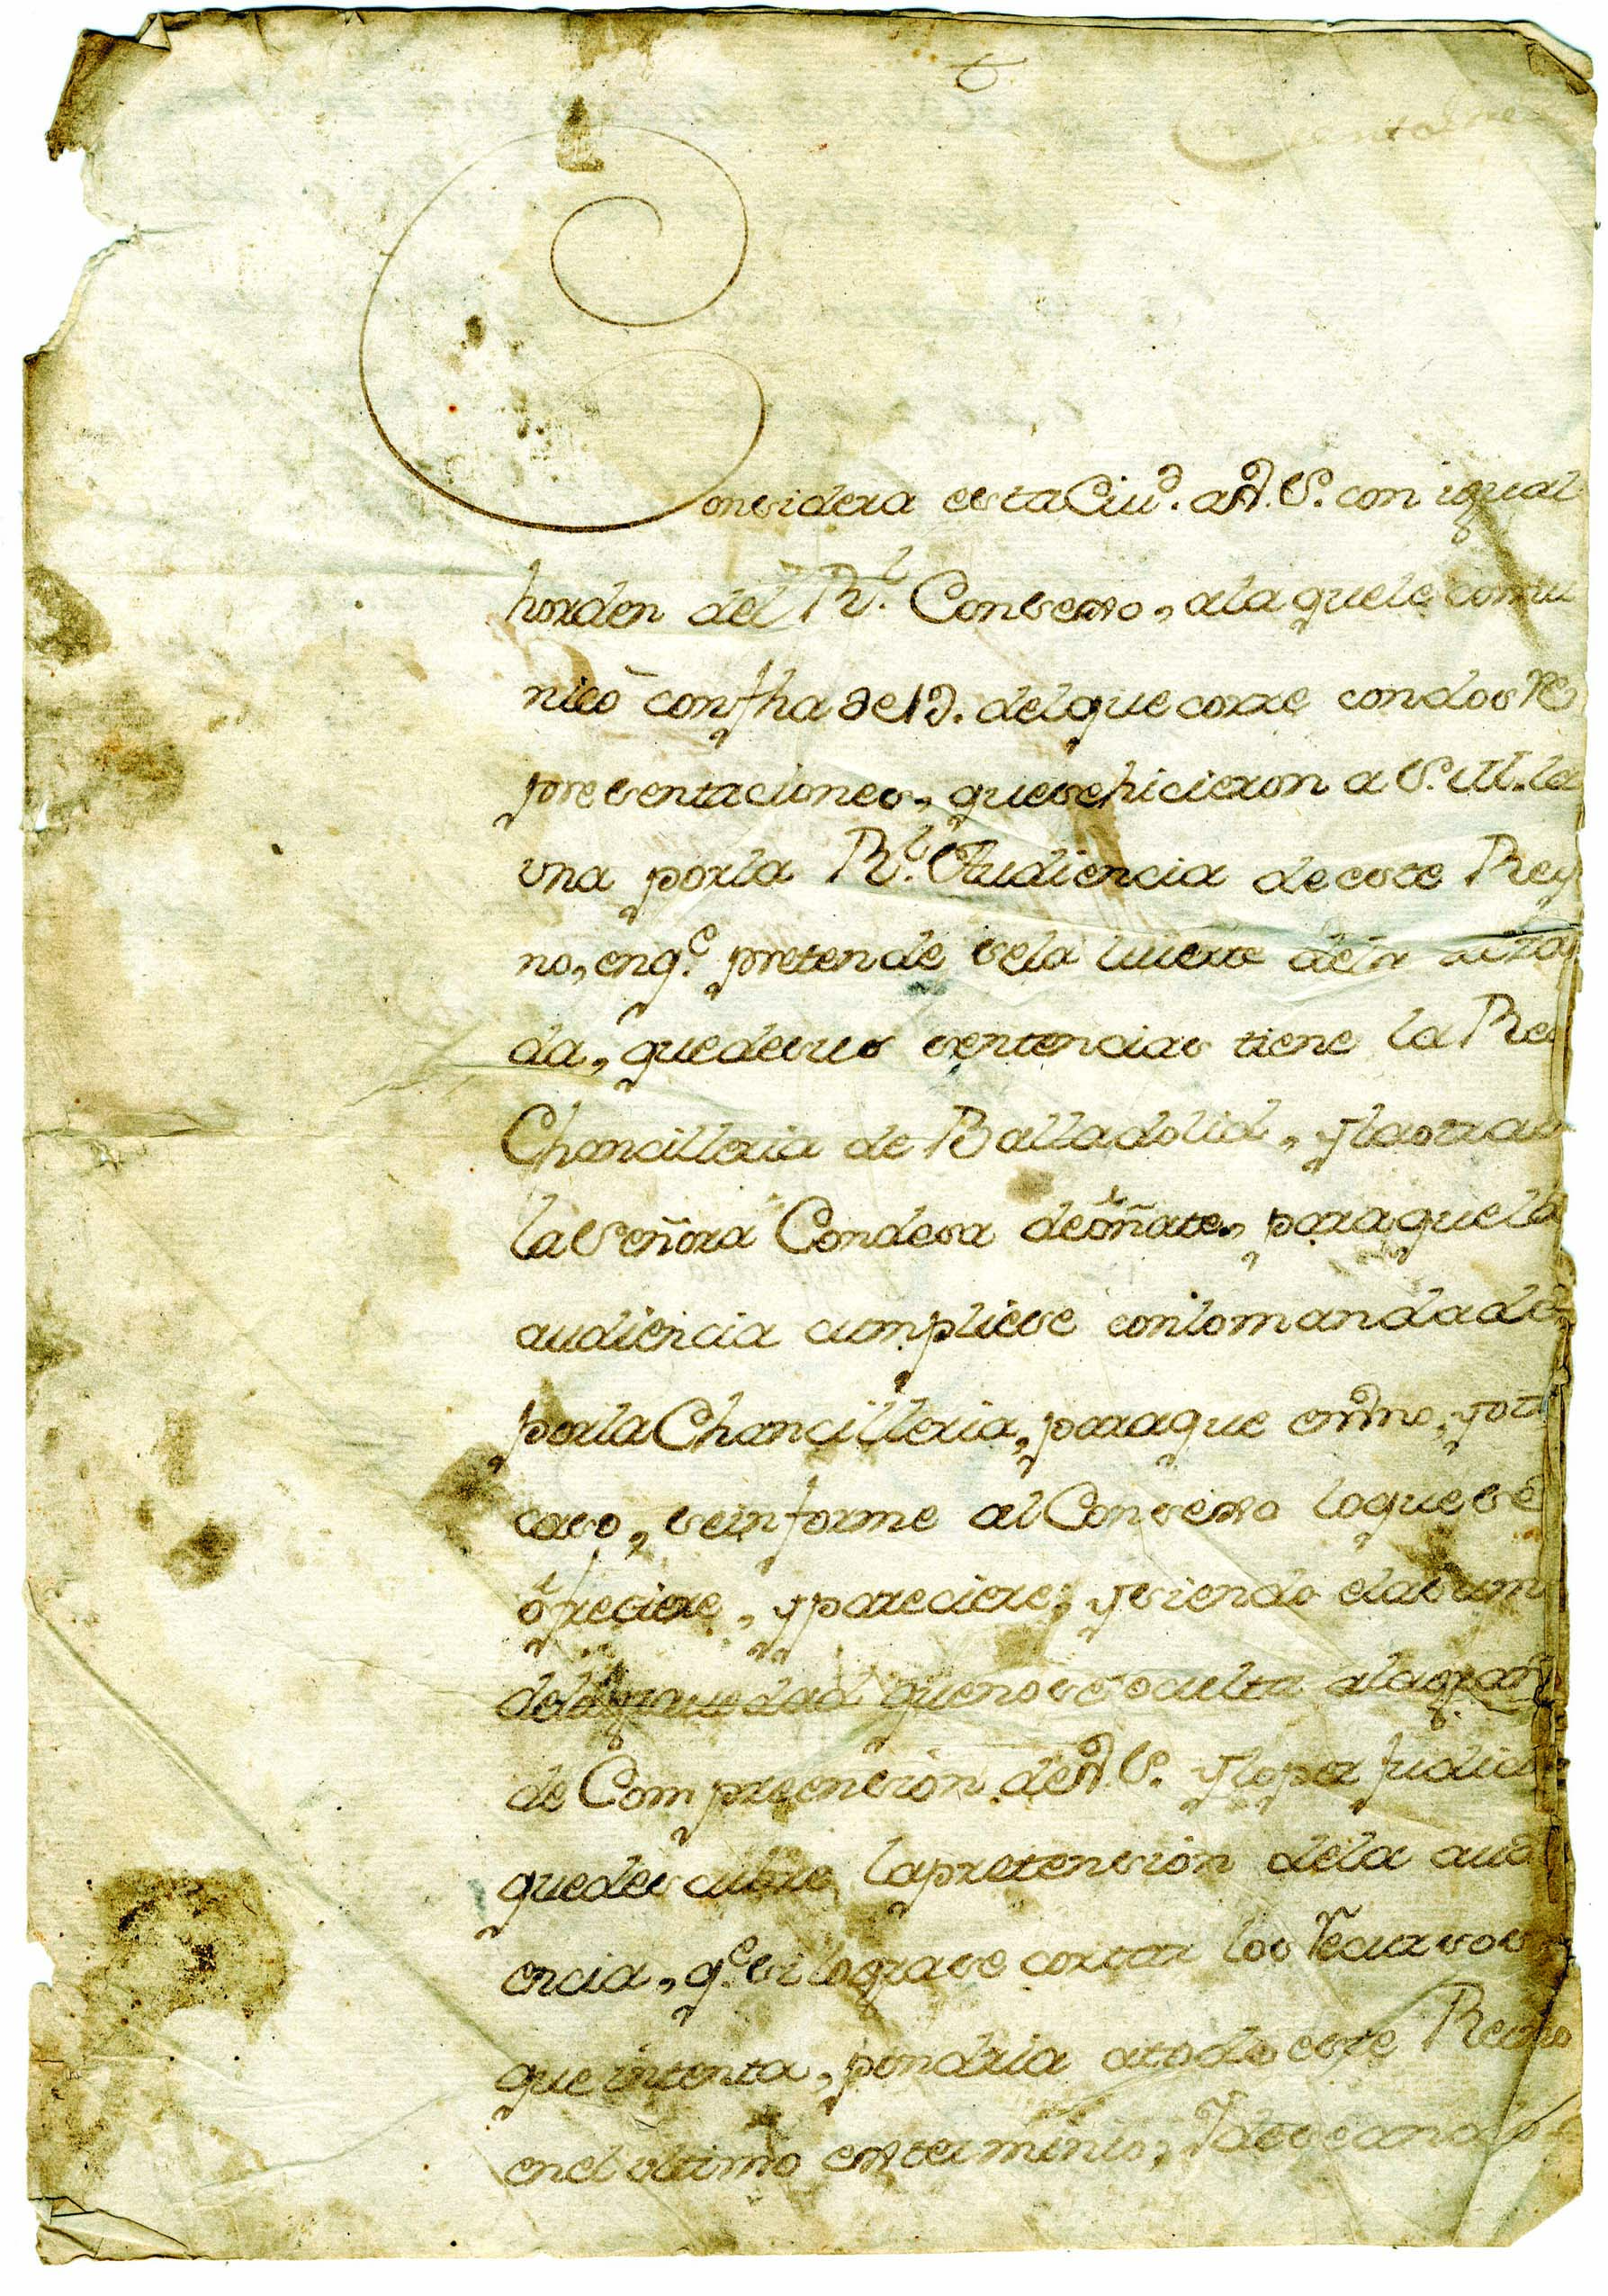 Considera esta Ciud. a V.S. con igual
horden del Rl. Consexo, ala quele comu
nicò con fha de 19. del que corre con dos Re
presentaciones, quesehicieron a S.M. la
vna porla Rl. Audiencia de este Rey
no, enqe. pretende sela liuerte dela
da, quedesus sentencias tiene la Rl
Chancilleria de Balladolid, y laotra
la Señora Condesa de oñate, paraquela
audiencia cumpliese conlomandado
porla Chancilleria, paraque en Vno, y otro
caso, seinforme al Consexo loquese
ofreciere, y pareciere; y siendo elasum
de Compreension de V.S. y loper Judici
quedescubre, lapretension dela audi
encia, qe. silograse cortar los Recursos
que intenta, pondria atodo este Reyno
enel vltimo exterminio; Y deseando